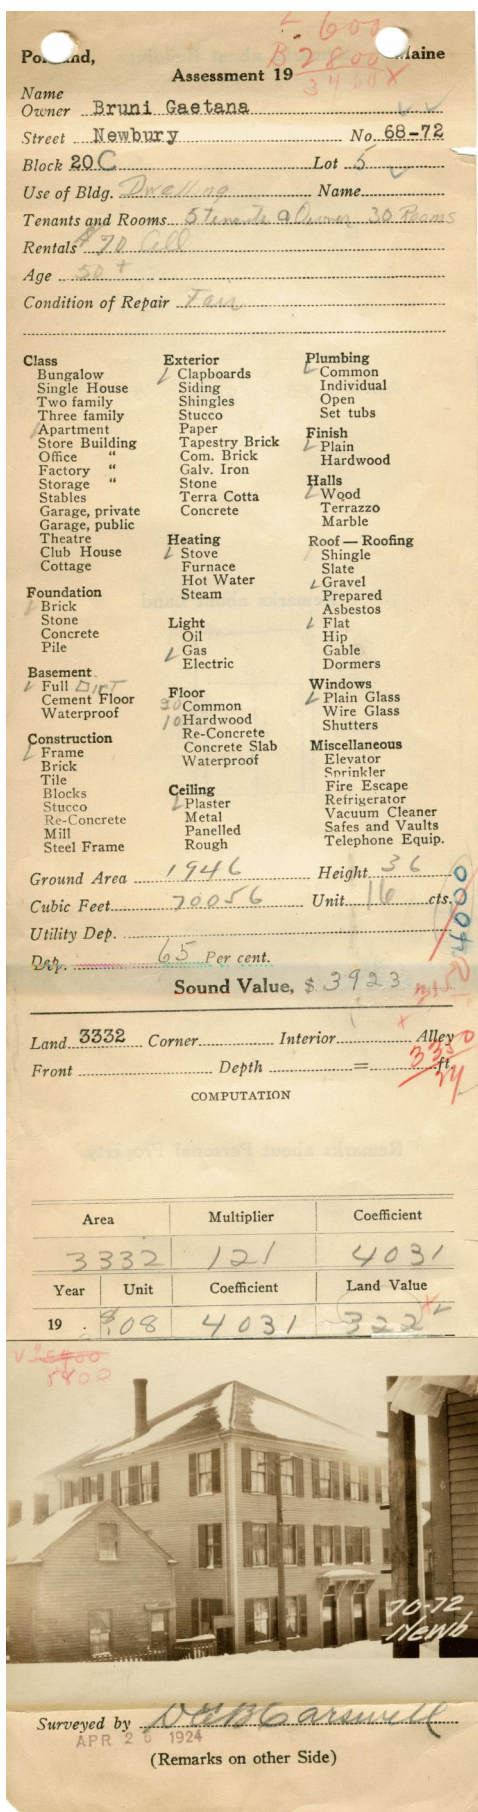 L 600
B 2800
3400 X
Portland, Maine
Assessment 19
Name
Owner Bruni Gaetana
Street Newbury No. 68-72
Block 20C Lot 5
Use of Bldg. Dwelling Name
Tenants and Rooms 5 tenants & Owner 30 Rooms
Rentals $70 All
Age 50+
Condition of Repair Fair
Class
Bungalow
Single House
Two family
Three family
Apartment
Store Building
Office "
Factory "
Storage "
Stables
Garage, private
Garage, public
Theatre
Club House
Cottage
Foundation
Brick
Stone
Concrete
Pile
Basement
Full DIRT
Cement Floor
Waterproof
Construction
Frame
Brick
Tile
Blocks
Stucco
Re-Concrete
Mill
Steel Frame
Exterior
Clapboards
Siding
Shingles
Stucco
Paper
Tapestry Brick
Com. Brick
Galv. Iron
Stone
Terra Cotta
Concrete
Heating
Stove
Furnace
Hot Water
Steam
Light
Oil
Gas
Electric
Floor
20 Common
10 Hardwood
Re-Concrete
Concrete Slab
Waterproof
Ceiling
Plaster
Metal
Panelled
Rough
Plumbing
Common
Individual
Open
Set tubs
Finish
Plain
Hardwood
Halls
Wood
Terrazzo
Marble
Roof — Roofing
Shingle
Slate
Gravel
Prepared
Asbestos
Flat
Hip
Gable
Dormers
Windows
Plain Glass
Wire Glass
Shutters
Miscellaneous
Elevator
Sprinkler
Fire Escape
Refrigerator
Vacuum Cleaner
Safes and Vaults
Telephone Equip.
Ground Area 1946 Height 36
Cubic Feet 70056 Unit 16 cts.
Utility Dep.
Dep. 65 Per cent.
Sound Value, $ 3923
Land 3332 Corner Interior Alley
Front Depth = ft.
COMPUTATION
Area Multiplier Coefficient
3332 121 4031
Year Unit Coefficient Land Value
19 . $.08 4031 322
5800
70-72
Newb
Surveyed by D E B Carswell
APR 26 1924
(Remarks on other Side)